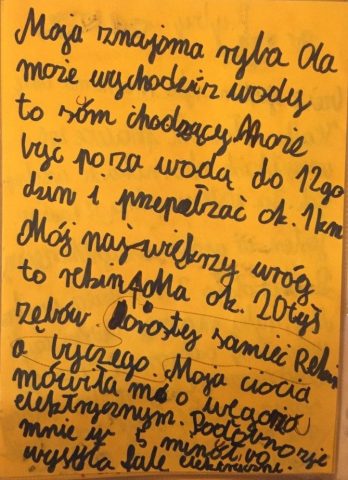 Moja znajoma ryba Ola
może wychodzić z wody
to sóm chodzący. Może
być poza wodą do 12 go
dzin i przepełzać ok. 1 km
Mój największy wróg
to rekin. Ma ok. 20 tyś
zębów. dorosły samiec Reki
a byczego. Moja ciocia
mówiła mi o węgorzu
elektrycznym. Podobno
mnie w 5 minut
wysyła fale elektryczne.